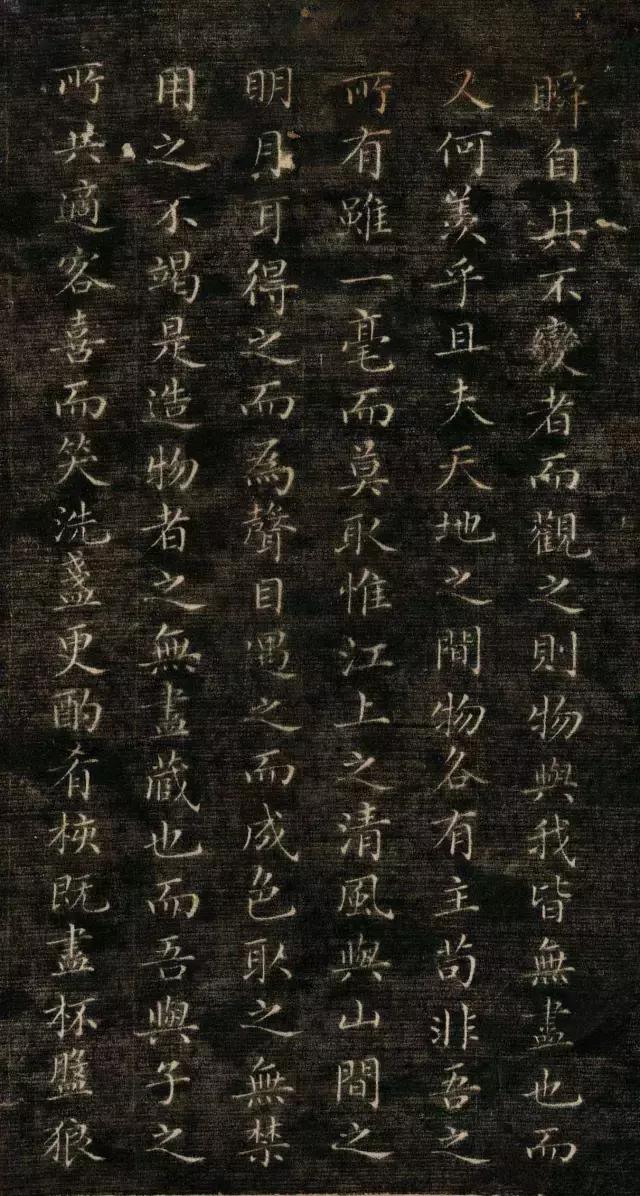 瞬自其不變者而觀之則物與我皆無盡也而
又何羨乎且夫天地之間物各有主苟非吾之
所有雖一毫而莫取惟江上之清風與山間之
明月耳得之而為聲目遇之而成色取之無禁
用之不竭是造物者之無盡藏也而吾與子之
所共適客喜而笑洗盞更酌肴核既盡杯盤狼